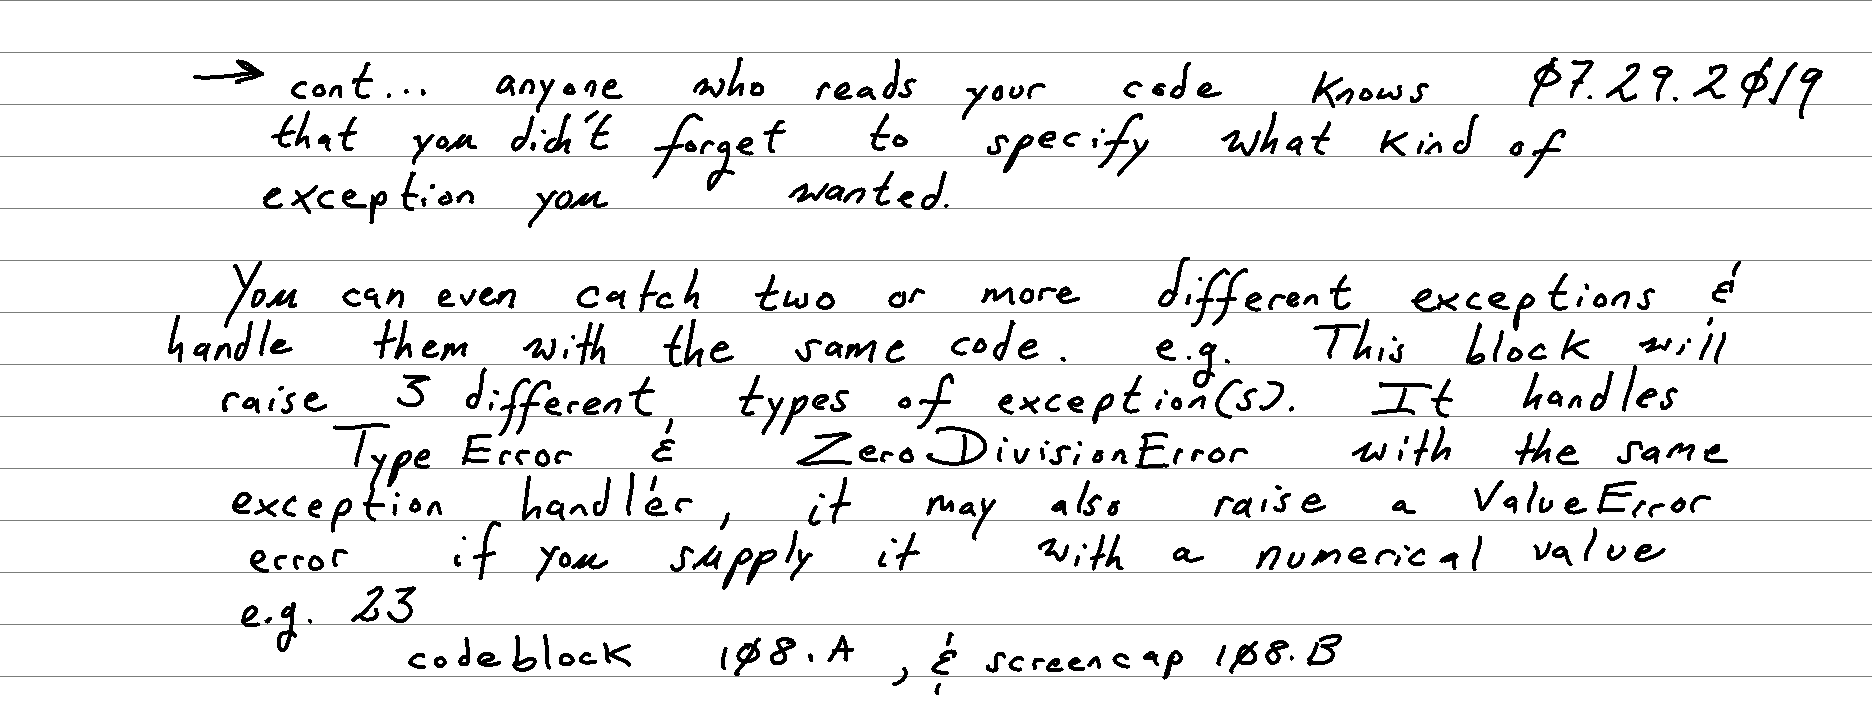 → cont... anyone who reads your code knows Ø7.29.2Ø19
that you didn't forget to specify what kind of
exception you wanted.
You can even catch two or more different exceptions &
handle them with the same code. e.g. This block will
raise 3 different types of exception(s). It handles
TypeError & ZeroDivisionError with the same
exception handler, it may also raise a ValueError
error if you supply it with a numerical value
e.g. 23
codeblock 1Ø8.A, & screencap 1Ø8.B